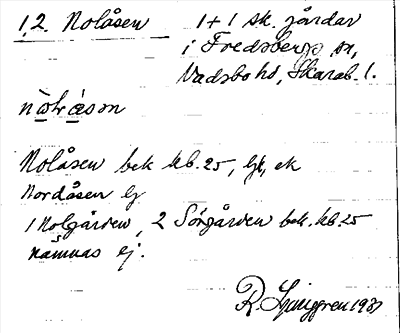 1,2. Nolåsen 1+1 sk. gårdar
i Fredsbergs sn,
Vadsbo hd, Skarab. l.
Nolåsen bek kb. 25, ek
Nordåsen ej
1 Nolgården, 2 Sörgården bek. kb. 25
nämnas ej.
R. Ljunggren 1937